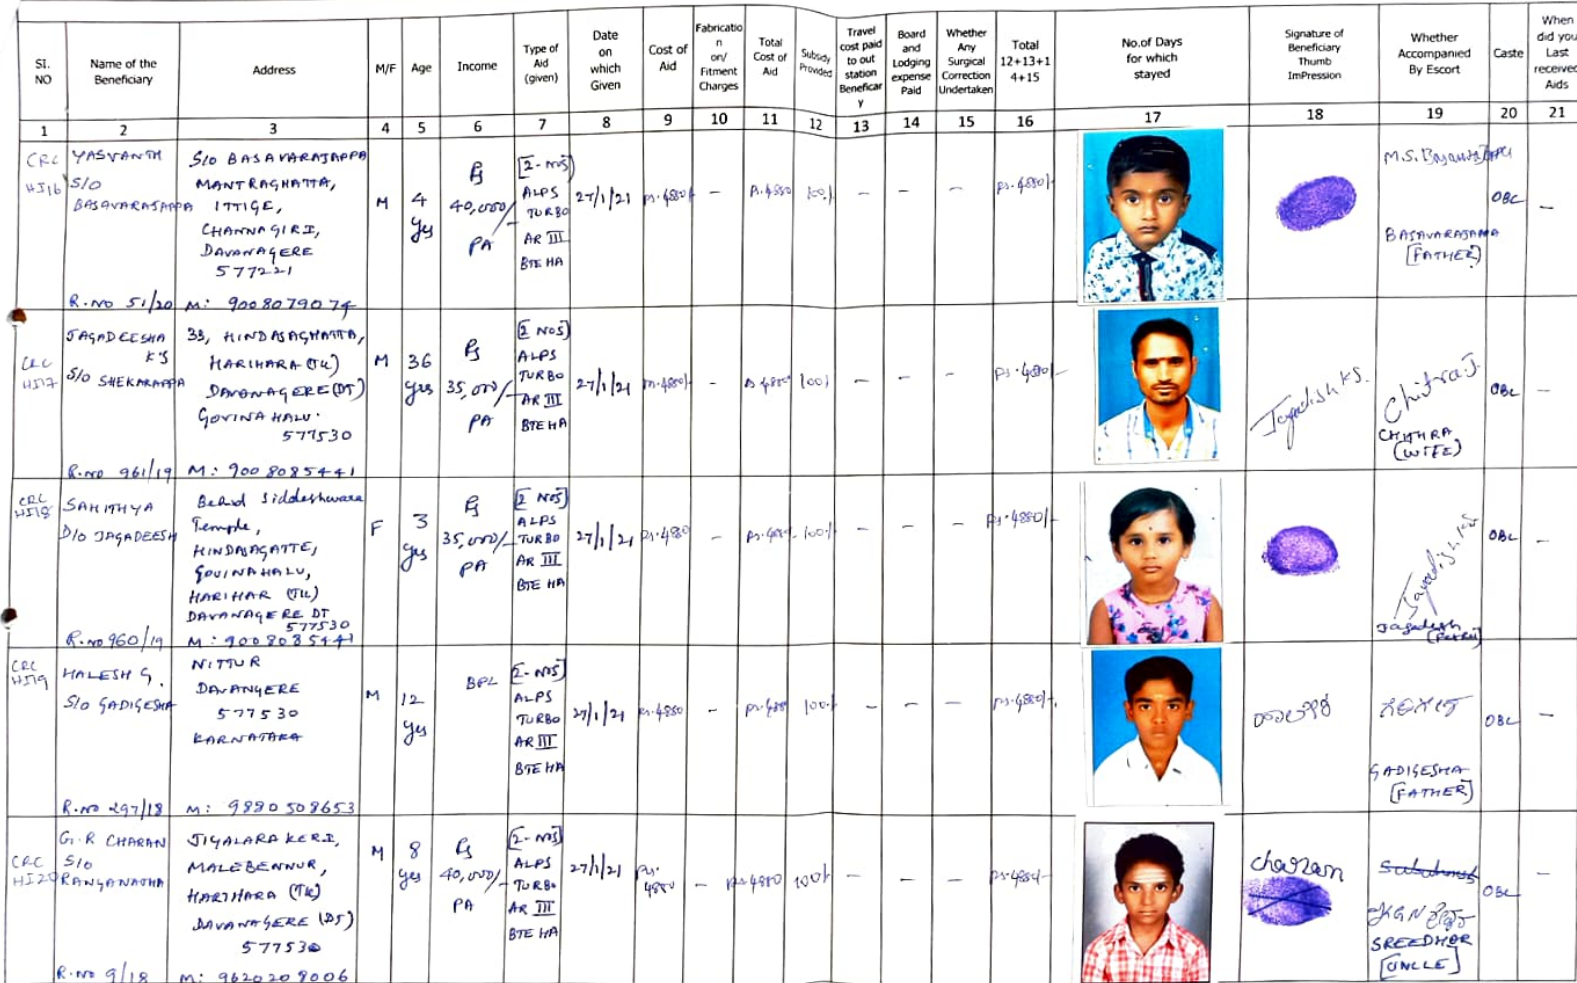 SI. NO
Name of the Beneficiary
Address
M/F
Age
Income
Type of Aid (given)
Date on which Given
Cost of Aid
Fabricatio n on/ Fitment Charges
Total Cost of Aid
Subsidy Provided
Travel cost paid to out station Beneficar y
Board and Lodging expense Paid
Whether Any Surgical Correction Undertaken
Total 12+13+1 4+15
No.of Days for which stayed
Signature of Beneficiary Thumb ImPression
Whether Accompanied By Escort
Caste
When did you Last received Aids
1 2 3 4 5 6 7 8 9 10 11 12 13 14 15 16 17 18 19 20 21
CRC HJ16
YASVANTH
S/O
BASAVARAJAPPA
R.NO 51/20
S/O BASAVARAJAPPA
MANTRAGHATTA,
ITTIGE,
CHANNAGIRI,
DAVANAGERE
577221
M: 9008079074
M
4 yrs
Rs 40,000/- PA
[2-NOS]
ALPS
TURBO
AR III
BTE HA
27/1/21
Rs.4880/-
-
Rs.4880
100/.
-
-
-
Rs.4880/-
BASAVARAJAPPA
[FATHER]
OBC
-
CRC HJ17
JAGADEESHA
K S
S/O SHEKARAPPA
R.NO 961/19
33, HINDASAGHATTA,
HARIHARA (TK)
DAVANAGERE (DT)
GOVINAHALU.
577530
M: 9008085441
M
36 yrs
Rs 35,000/- PA
[2 NOS]
ALPS
TURBO
AR III
BTE HA
27/1/21
Rs.4880/-
-
Rs 4880
100/.
-
-
-
Rs.4880/-
Jagadish KS.
Chitra J.
CHITHRA
(WIFE)
OBC
-
CRC HJ18
SAHITHYA
D/O JAGADEESH
R.NO 960/19
Behd Siddeshwara
Temple,
HINDASAGATTE,
GOVINAHALU,
HARIHAR (TK)
DAVANAGERE DT
577530
M: 9008085441
F
3 yrs
Rs 35,000/- PA
[2 NOS]
ALPS
TURBO
AR III
BTE HA
27/1/21
Rs.4880
-
Rs.4880
100/.
-
-
-
Rs.4880/-
Jagadish KS
Jagadesh
OBC
-
CRC HJ19
HALESH G.
S/O GADIGESHA
R.NO 297/18
NITTUR
DAVANGERE
577530
KARNATAKA
M: 9880508653
M
12 yrs
BPL
[2-NOS]
ALPS
TURBO
AR III
BTE HA
27/1/21
Rs.4880
-
Rs.4880
100/.
-
-
-
Rs.4880/-
GADIGESHA
[FATHER]
OBC
-
CRC HJ20
G.R CHARAN
S/O
RANGANATHA
R.NO 9/18
JIGALARA KERI,
MALEBENNUR,
HARIHARA (TK)
DAVANAGERE (DT)
577530
M: 9620208006
M
8 yrs
Rs 40,000/- PA
[2-NOS]
ALPS
TURBO
AR III
BTE HA
27/1/21
Rs. 4880
-
Rs 4880
100/.
-
-
-
Rs.4880/-
charan
SREEDHAR
[UNCLE]
OBC
-